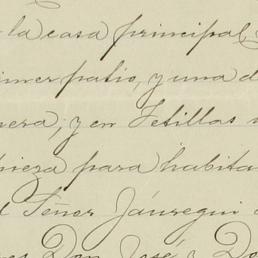 la casa principal
primer patio, y una d
nera; y en Tetillas
pieza para habita
l Señor Jáuregui
es Don José y Do